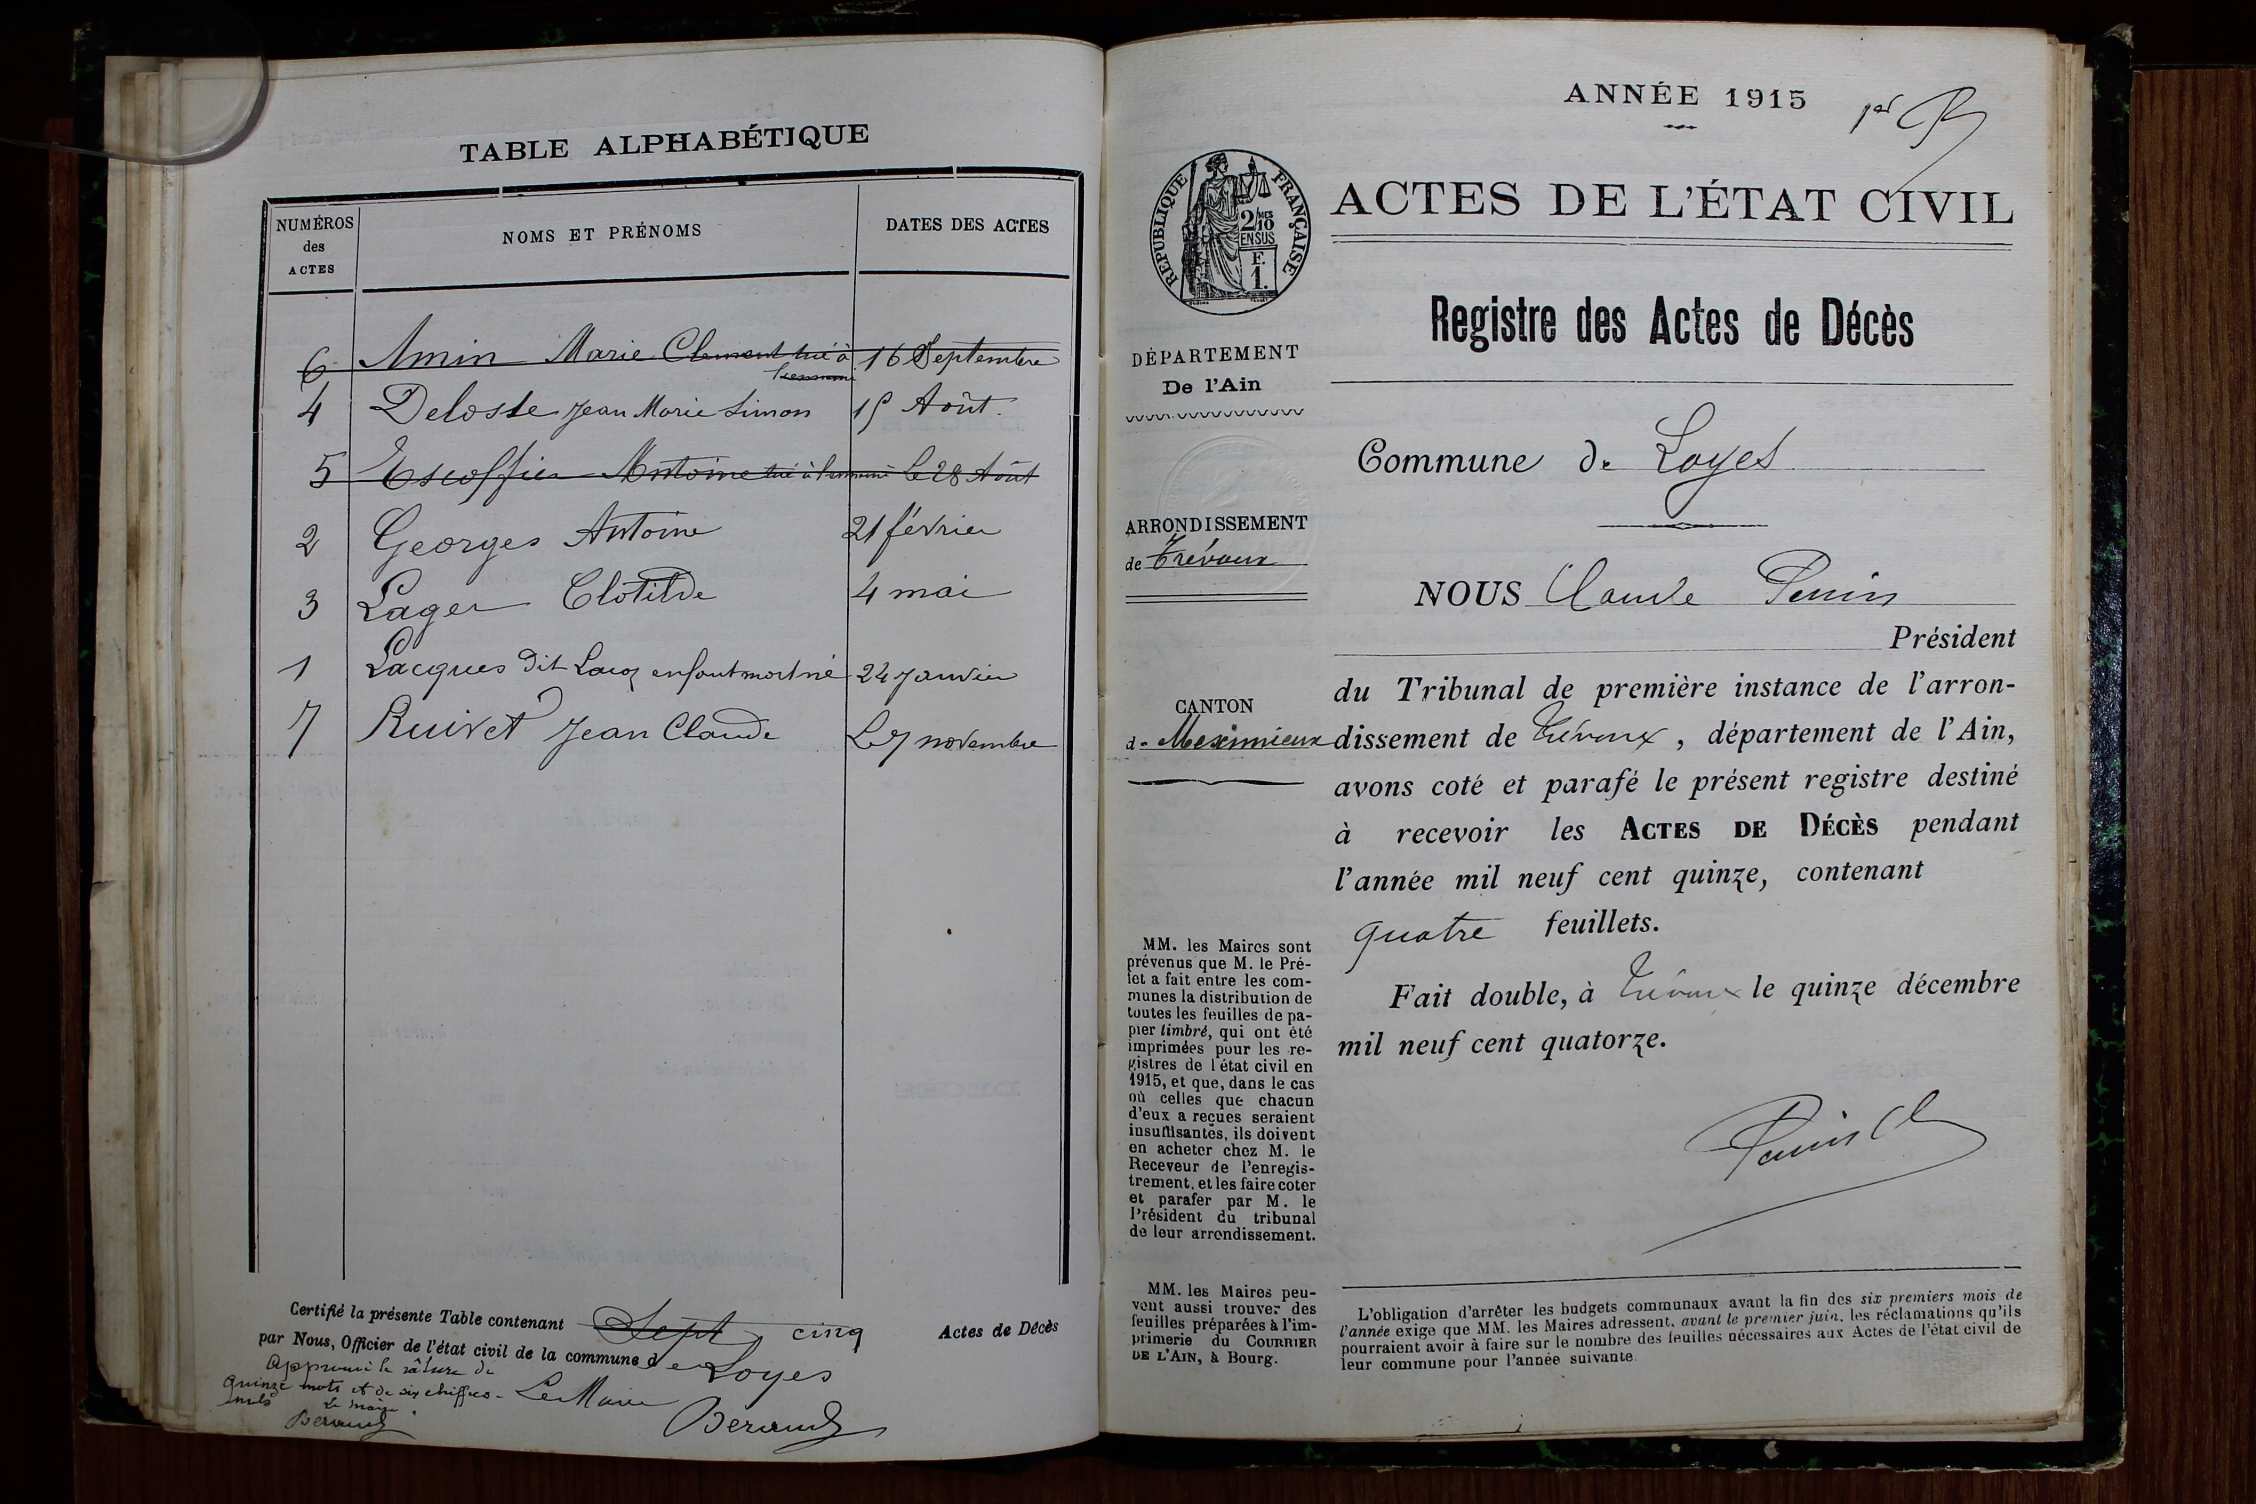 TABLE ALPHABÉTIQUE
NUMÉROS des ACTES
NOMS ET PRÉNOMS
DATES DES ACTES
6 Amin Marie Clement tué à l'ennemi 16 Septembre
4 Deloste Jean Marie Simon 15 Août.
5 Escoffier Antoine tué à l'ennemi le 28 Août
2 Georges Antoine 21 février
3 Lager Clotilde 4 mai
1 Lacques dit Lacq enfant mort né 24 Janvier
7 Ruivet Jean Claude Le 7 novembre
Certifié la présente Table contenant Sept cinq Actes de Décès
par Nous, Officier de l'état civil de la commune de Loyes
Approuvé la râture de
quinze mots et de six chiffres
nuls
Le maire
Beraud
Le Maire
Beraud
ANNÉE 1915
1er
RÉPUBLIQUE FRANÇAISE
2/10
MES
EN SUS
F.
1.
ACTES DE L'ÉTAT CIVIL
Registre des Actes de Décès
DÉPARTEMENT
De l'Ain
Commune de Loyes
ARRONDISSEMENT
de Trévoux
NOUS Claude Perrin
Président
CANTON
de Meximieux
du Tribunal de première instance de l'arron-
dissement de Trévoux, département de l'Ain,
avons coté et parafé le présent registre destiné
à recevoir les ACTES DE DÉCÈS pendant
l'année mil neuf cent quinze, contenant
quatre feuillets.
Fait double, à Trévoux le quinze décembre
mil neuf cent quatorze.
Perrin Cl
MM. les Maires sont
prévenus que M. le Pré-
fet a fait entre les com-
munes la distribution de
toutes les feuilles de pa-
pier timbré, qui ont été
imprimées pour les re-
gistres de l'état civil en
1915, et que, dans le cas
où celles que chacun
d'eux a reçues seraient
insuffisantes, ils doivent
en acheter chez M. le
Receveur de l'enregis-
trement, et les faire coter
et parafer par M. le
Président du tribunal
de leur arrondissement.
MM. les Maires peu-
vent aussi trouver des
feuilles préparées à l'im-
primerie du COURRIER
DE L'AIN, à Bourg.
L'obligation d'arrêter les budgets communaux avant la fin des six premiers mois de
l'année exige que MM. les Maires adressent, avant le premier juin, les réclamations qu'ils
pourraient avoir à faire sur le nombre des feuilles nécessaires aux Actes de l'état civil de
leur commune pour l'année suivante.